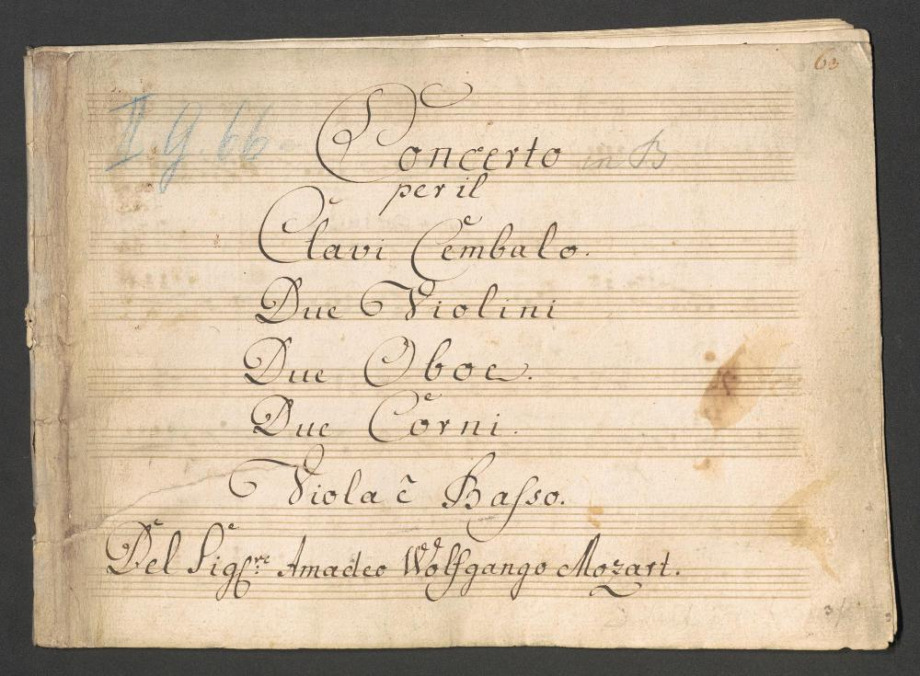 63
II. g. 66
Concerto in B
per il
Clavi Cembalo.
Due Violini
Due Oboe.
Due Corni.
Viola è Basso.
Del Sigre: Amadeo Wolfgango Mozart.